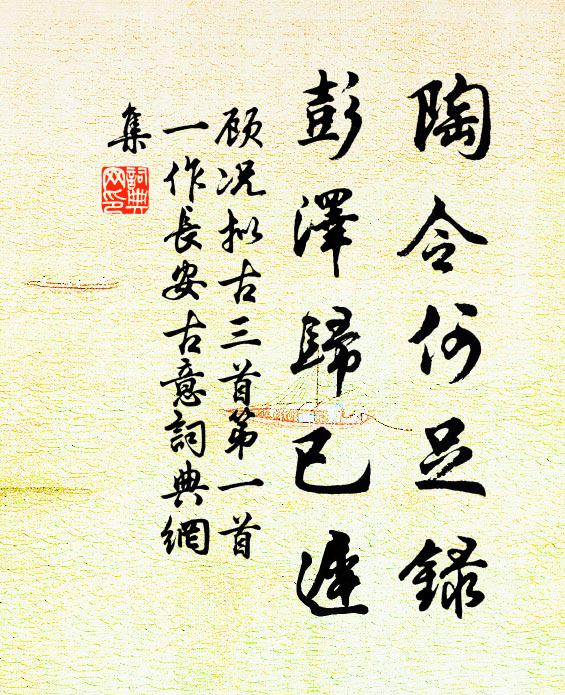 陶令何足錄
彭澤歸已遲
顾况拟古三首第一首
一作長安古意詞典網
集
詞典
网印